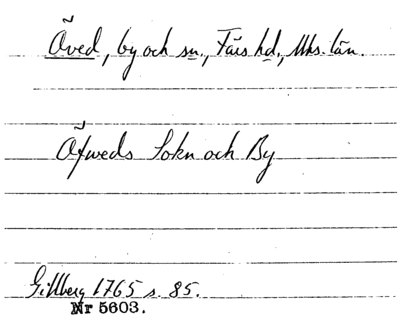 Öved, by och sn., Färs hd, Mhs. län.
Öfweds Sokn och By
Gillberg 1765 s. 85.
Nr 5603.